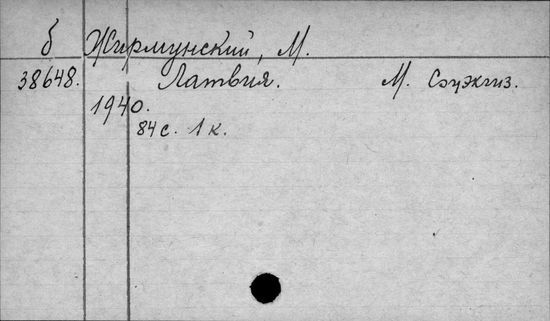 б Жирмунский, М.
38648. Латвия. М. Соцэкгиз.
1940.
84 с. 1 к.